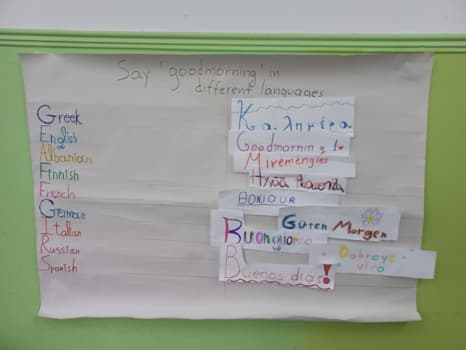 Say 'goodmorning' in
different languages
Greek
English
Albanian
Finnish
French
German
Italian
Russian
Spanish
Καλημέρα
Goodmorning!
Miremengjes
Hyvää Huomenta
BONJOUR
Guten Morgen
Buongiorno
Dobroye
utro
Buenos dias!